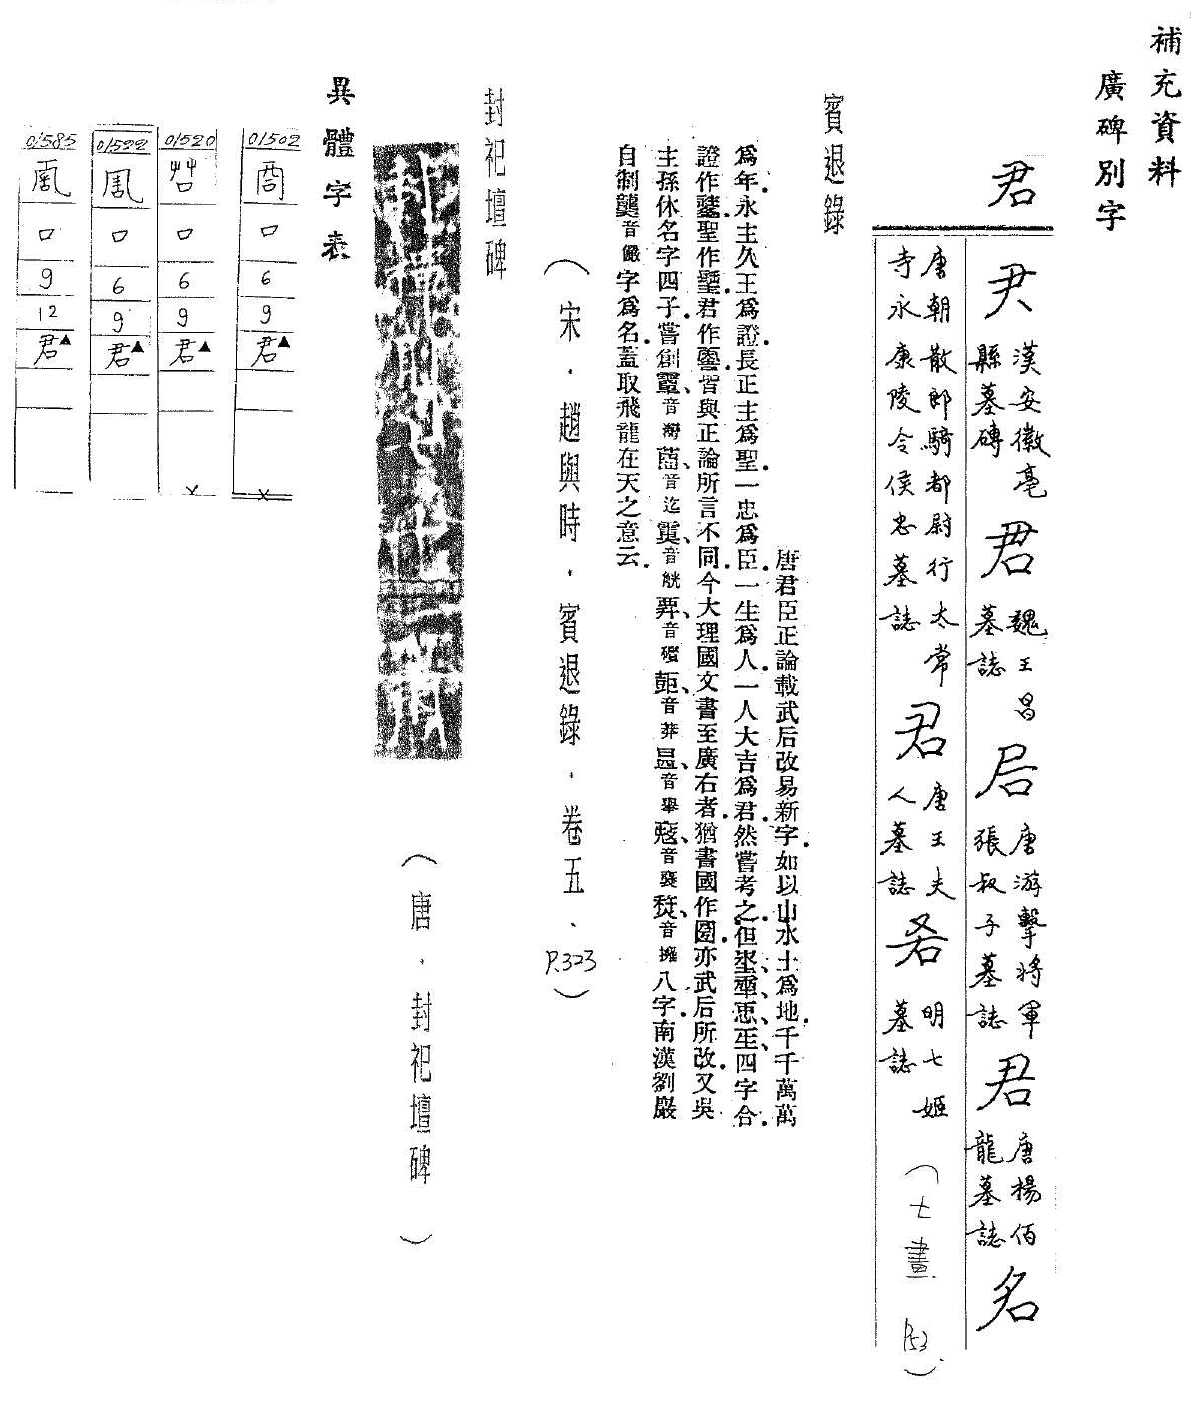 補充資料
廣碑別字
君
漢安徽亳
縣墓磚
君
魏王昌
墓誌
唐游擊將軍
張叔子墓誌
君
唐楊佰
龍墓誌
唐朝散郎騎都尉行太常
寺永康陵令侯忠墓誌
君
唐王夫
人墓誌
明七姬
墓誌
(七畫 P.53)
賓退錄
唐君臣正論載武后改易新字如以山水土為地千千萬萬
為年永主久王為證長正主為聖一忠為臣一生為人一人大吉為君然嘗考之但埊𠡦𢘑𤯔四字合
證作𨭻聖作𨲢君作𠺞皆與正論所言不同今大理國文書至廣右者猶書國作圀亦武后所改又吳
主孫休名字四子嘗創𩅦音灣𦶎音迄𩃙音觥𢍸音礥𧯏音莽昷音舉𡨥音褒㷏音擁八字南漢劉巖
自制龑音儼字為名蓋取飛龍在天之意云
(宋.趙與時.賓退錄.卷五、P.323)
封祀壇碑
(唐.封祀壇碑)
異體字表
01502
口
6
9
君▲
x
01520
口
6
9
君▲
x
01522
口
6
9
君▲
01585
口
9
12
君▲